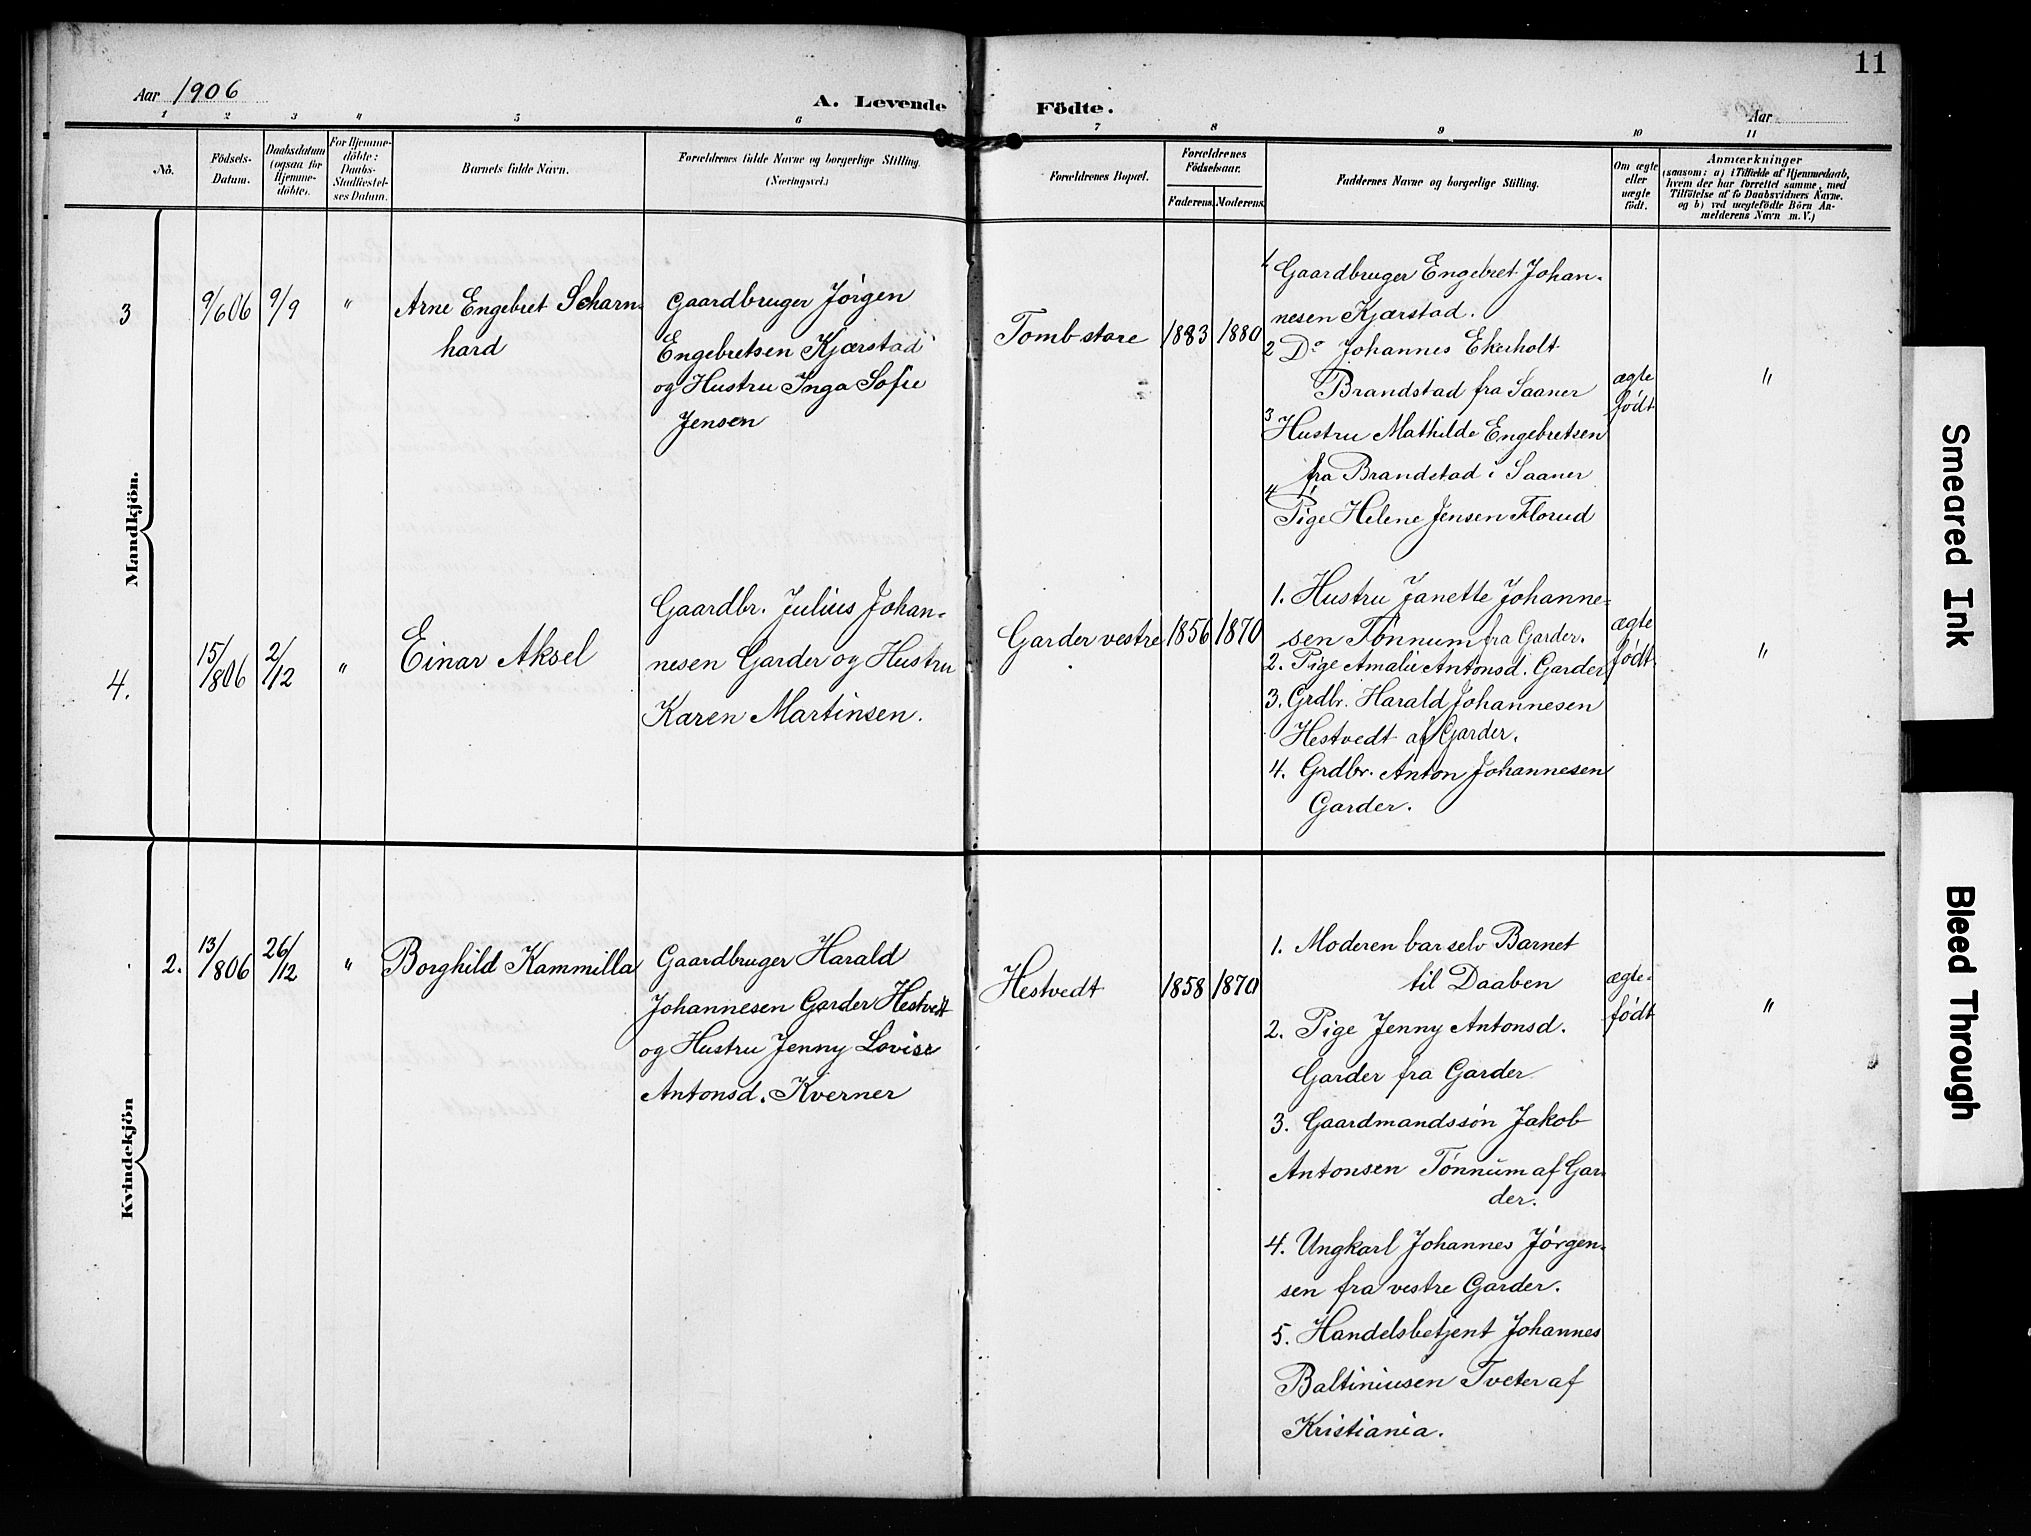 11
Aar 1906
A. Levende Födte.
Aar
1 2 3 4 5 6 7 8 9 10 11
No.
Födsels-
Datum.
Daabsdatum
(ogsaa for
Hjemme-
döbte).
For Hjemme-
döbte:
Daabs-
Stadfæstel-
ses Datum.
Barnets fulde Navn.
Forældrenes fulde Navne og borgerlige Stilling.
(Næringsvei.)
Forældrenes Bopæl.
Forældrenes
Födselsaar.
Faderens. Moderens.
Faddernes Navne og borgerlige Stilling.
Om ægte
eller
uægte
födt.
Anmærkninger
(saasom: a) i Tilfælde af Hjemmedaab,
hvem der har forrettet samme, med
Tilföielse af to Daabsvidners Navne.
og b) ved uægtefödte Börn An-
melderens Navn m.V.)
Mandkjön.
3
9/6 06
9/9
"
Arne Engebret Scharn-
hard
Gaardbruger Jørgen
Engebretsen Kjærstad
og Hustru Inga Sofie
Jensen
Tomb store
1883
1880
1 Gaardbruger Engebret Johan-
nesen Kjærstad.
2 Do Johannes Ekerholt
Brandstad fra Saaner
3 Hustru Mathilde Engebretsen
fra Brandstad i Saaner
4 Pige Helene Jensen Florud
ægte
født
"
4.
15/8 06
2/12
"
Einar Aksel
Gaardbr. Julius Johan-
nesen Garder og Hustru
Karen Martinsen.
Garder vestre
1856
1870
1. Hustru Janette Johanne-
sen Tønnum fra Garder.
2. Pige Amalie Antonsd. Garder
3. Grdbr. Harald Johannesen
Hestvedt af Garder.
4. Grdbr. Anton Johannesen
Garder.
ægte
født
"
Kvindekjön
2.
13/8 06
26/12
"
Borghild Kammilla
Gaardbruger Harald
Johannesen Garder Hestvedt
og Hustru Jenny Lovise
Antonsd. Kverner
Hestvedt
1858
1870
1. Moderen bar selv Barnet
til Daaben
2. Pige Jenny Antonsd.
Garder fra Garder
3. Gaardmandssøn Jakob
Antonsen Tønnum af Gar-
der.
4. Ungkarl Johannes Jørgen-
sen fra vestre Garder.
5. Handelsbetjent Johannes
Baltiniusen Tveter af
Kristiania.
ægte-
født
"
Smeared Ink
Bleed Through